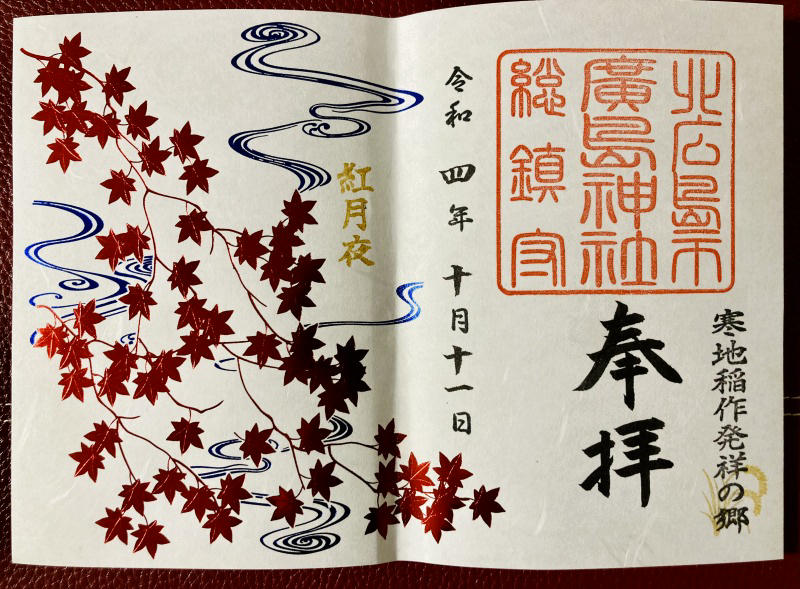 寒地稲作発祥の郷
北広島市
廣島神社
総鎮守
奉拝
令和四年十月十一日
紅月夜